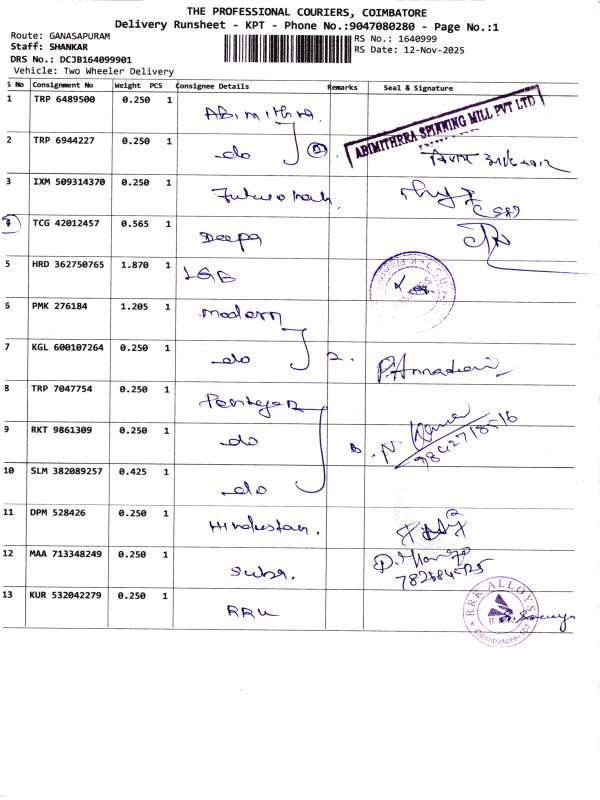 THE PROFESSIONAL COURIERS, COIMBATORE
Delivery Runsheet - KPT - Phone No.:9047080280 - Page No.:1
Route: GANASAPURAM
RS No.: 1640999
Staff: SHANKAR
RS Date: 12-Nov-2025
DRS No.: DCJB164099901
Vehicle: Two Wheeler Delivery
S No Consignment No Weight PCS Consignee Details Remarks Seal & Signature
1 TRP 6489500 0.250 1 Abimithra.
ABIMITHRRA SPINNING MILL PVT LTD
2 TRP 6944227 0.250 1 do
3 IXM 509314370 0.250 1
4 TCG 42012457 0.565 1 Deepa
5 HRD 362750765 1.870 1 LGB
6 PMK 276184 1.205 1 modern
7 KGL 600107264 0.250 1 do 2.
8 TRP 7047754 0.250 1
9 RKT 9861309 0.250 1 do
10 SLM 382089257 0.425 1 do
11 DPM 528426 0.250 1 Hindustan.
12 MAA 713348249 0.250 1 Suba.
13 KUR 532042279 0.250 1 RRK
RRK ALLOYS
Coimbatore-107